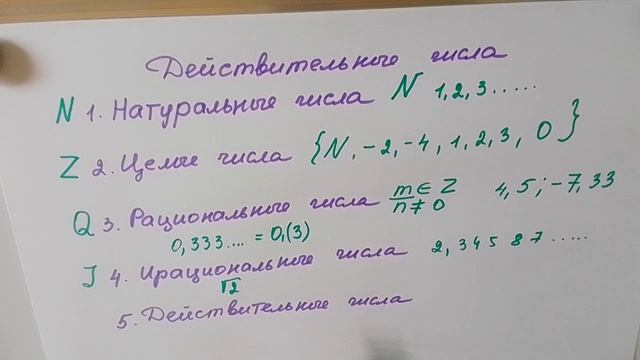 Действительные числа
N 1. Натуральные числа N 1, 2, 3.....
Z 2. Целые числа {N, -2, -4, 1, 2, 3, 0}
Q 3. Рациональные числа m∈Z / n≠0 4,5; -7,33
0,333.... = 0,(3)
J 4. Ирациональные числа 2,34587.....
√2
5. Действительные числа